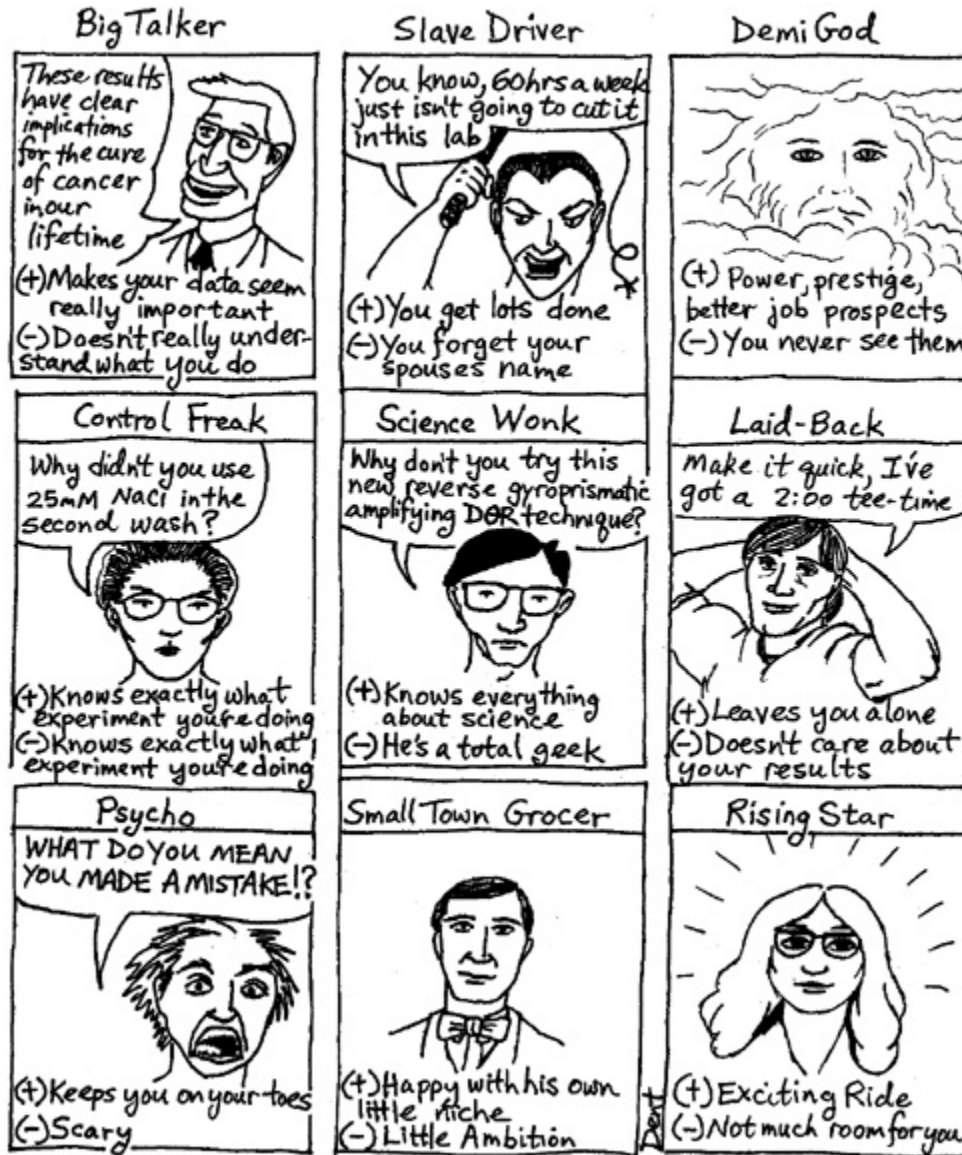 Big Talker
These results
have clear
implications
for the cure
of cancer
in our
lifetime
(+) Makes your data seem
really important
(-) Doesn't really under-
stand what you do
Slave Driver
You know, 60hrs a week
just isn't going to cut it
in this lab
(+) You get lots done
(-) You forget your
spouses name
Demi God
(+) Power, prestige,
better job prospects
(-) You never see them
Control Freak
Why didn't you use
25mM NaCl in the
second wash?
(+) Knows exactly what
experiment you're doing
(-) Knows exactly what
experiment you're doing
Science Wonk
Why don't you try this
new reverse gyroprismatic
amplifying DOR technique?
(+) Knows everything
about science
(-) He's a total geek
Laid-Back
Make it quick, I've
got a 2:00 tee-time
(+) Leaves you alone
(-) Doesn't care about
your results
Psycho
WHAT DO YOU MEAN
YOU MADE A MISTAKE!?
(+) Keeps you on your toes
(-) Scary
Small Town Grocer
(+) Happy with his own
little niche
(-) Little Ambition
Dent
Rising Star
(+) Exciting Ride
(-) Not much room for you